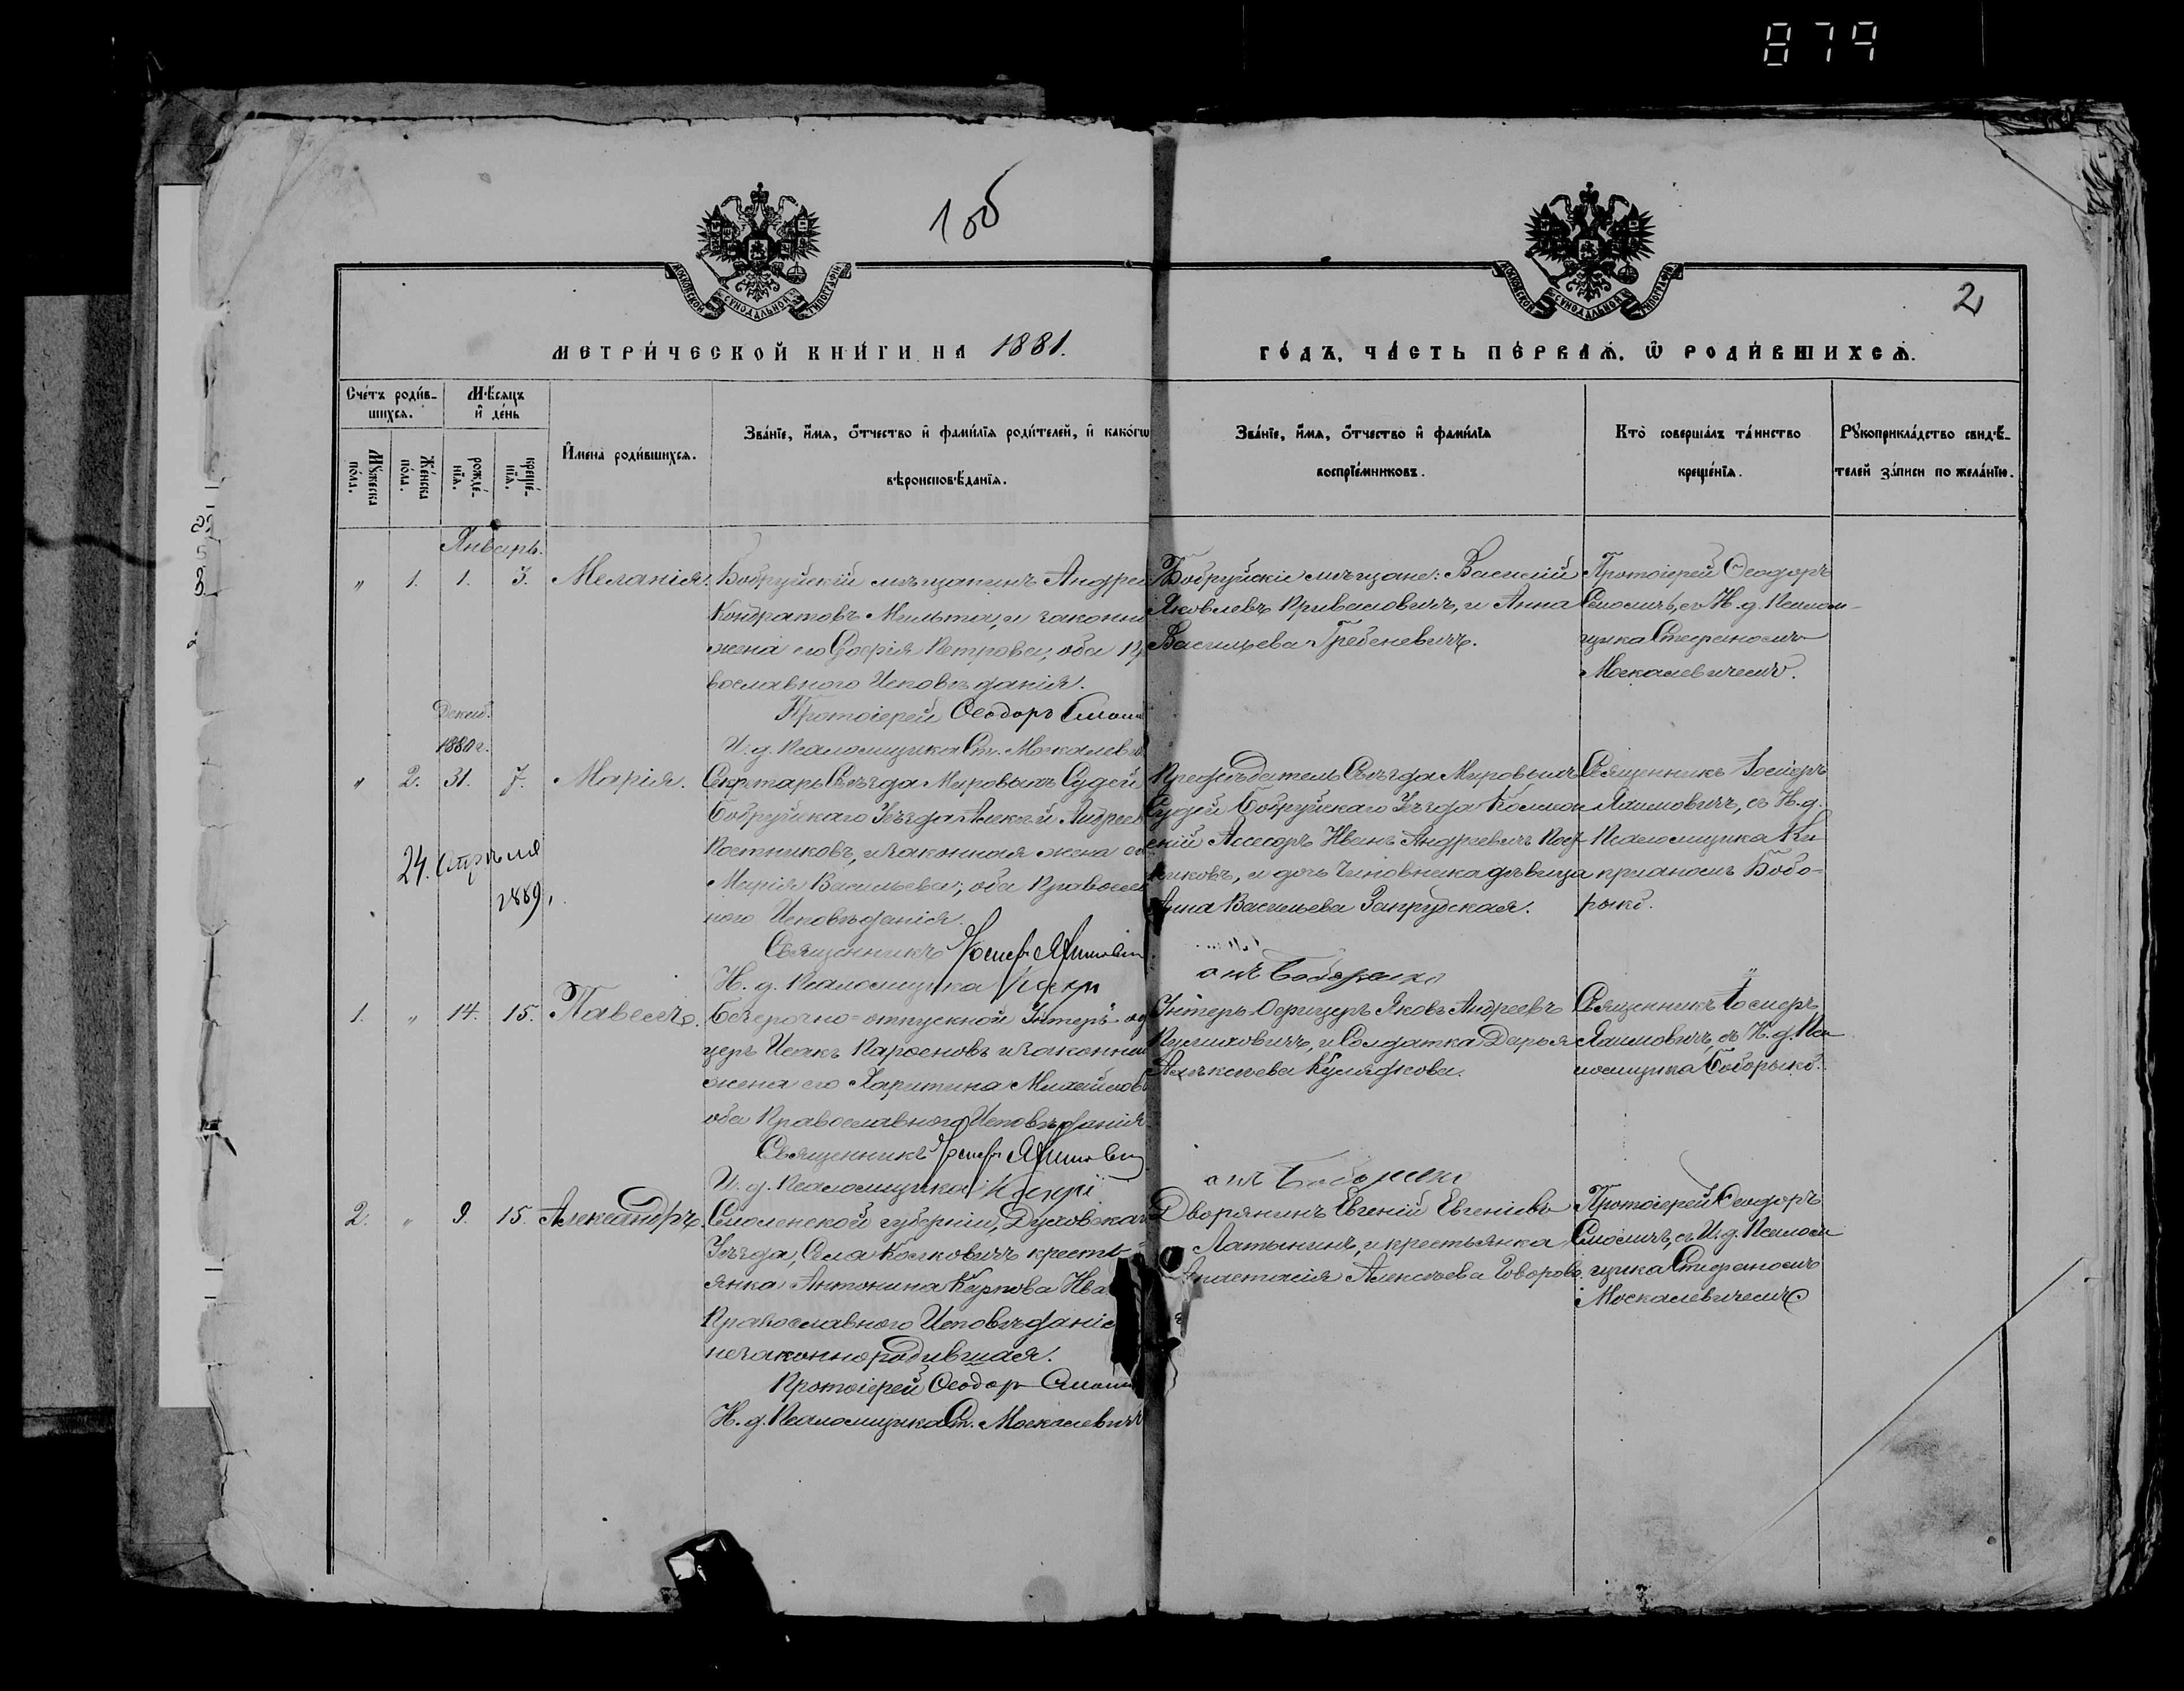 879
1об
2
МОСКОВСКОЙ СѴНОДАЛЬНОЙ ТИПОГРАФІИ
МОСКОВСКОЙ СѴНОДАЛЬНОЙ ТИПОГРАФІИ
МЕТРИ́ЧЕСКОЙ КНИ́ГИ НА 1881.
ГО́ДЪ, ЧА́СТЬ ПЕ́РВАЯ, Ѡ РОДИ́ВШИХСЯ.
Сче́тъ роди́в-
шихся.
Мѣ́сяцъ
и҆ де́нь
Мꙋ́жеска
по́ла.
Же́нска
по́ла.
рожде́-
нїя.
креще́-
нїя.
И҆мена̀ роди́вшихся.
Зва́нїе, и҆́мя, о҆́тчество и҆ фами́лїя роди́телей, и҆ како́гѡ
вѣроисповѣ́данїя.
Зва́нїе, и҆́мя, о҆́тчество и҆ фами́лїя
воспрїе́мниковъ.
Кто̀ соверша́лъ та́инство
креще́нїя.
Рꙋкоприкла́дство свидѣ́-
телей за́писи по жела́нїю.
Январь.
" 1. 1. 3. Меланія.
Бобруйскій мѣщанинъ Андрей
Кондратовъ и законная
жена его Софія Петрова, оба Пра
вославного Исповѣданія.
Протоіерей Ѳеодоръ
И. д. Псаломщика Ст. Москалев
Бобруйскіе мѣщане: Василій
Яковлевъ Приваловичъ, и Анна
Васильева Гребеневичъ.
Протоіерей Ѳеодоръ
съ И. д. Псалом-
щика Стефаномъ
Москалевичемъ.
Декаб.
1880 г.
" 2. 31. 7. Марія.
24. Апрѣля
1889.
Секретарь Съѣзда Мировыхъ Судей
Бобруйскаго Уѣзда Алексѣй Андреев
Постниковъ, и законная жена его
Марія Васильева; оба Православ
ного Исповѣданія.
Священникъ Іосифъ
И. д. Псаломщика
Предсѣдатель Съѣзда Мировыхъ
Судей Бобруйскаго Уѣзда Коллеж
скій Асессоръ Иванъ Андреевичъ Пост
никовъ, и дочь Чиновника дѣвица
Анна Васильева Запрудская.
Священникъ Іосифъ
съ И. д.
Псаломщика Ки-
пріаномъ Бобо-
рыко.
1. " 14. 15. Павелъ.
Безсрочно-отпускной Унтеръ-оф
церъ Исакъ Парѳеновъ и законная
жена его Харитина Михайлова
оба Православного Исповѣданія
Священникъ Іосифъ
И. д. Псаломщика
Унтеръ-Офицеръ Яковъ Андреевъ
и Солдатка Дарья
Алексѣева
Священникъ Іосифъ
съ И. д. Пса
ломщика Боборыко.
2. " 9. 15. Александръ.
Смоленской губерніи, Духовскаго
Уѣзда, Села кресть-
янка Антонина Карпова
Православного Исповѣданія
незаконнородившая.
Протоіерей Ѳеодоръ
И. д. Псаломщика Ст. Москалевичъ
Дворянинъ Евгеній Евгеніевъ
Латынинъ, и крестьянка
Анастасія Алексѣева
Протоіерей Ѳеодоръ
съ И. д. Псалом
щика Стефаномъ
Москалевичемъ